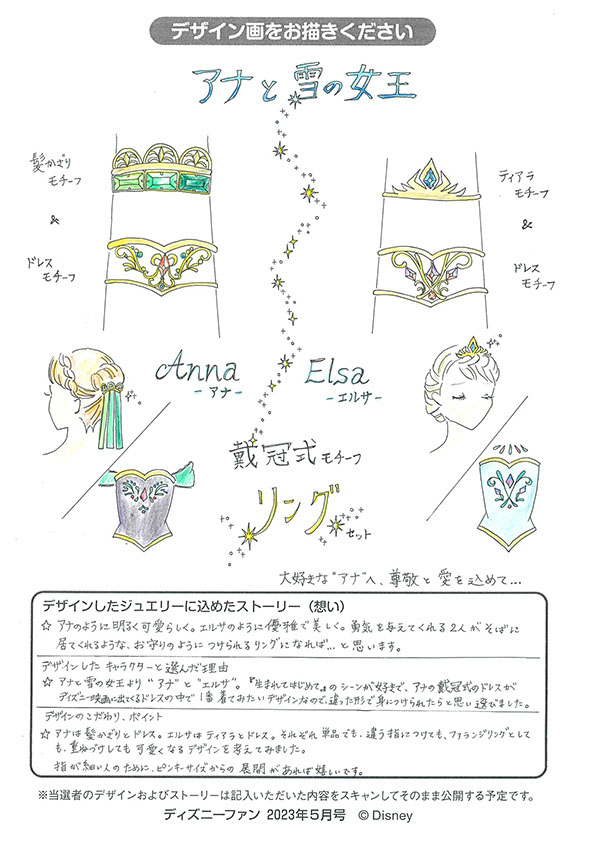 デザイン画をお描きください
アナと雪の女王
髪かざり
モチーフ
&
ドレス
モチーフ
ティアラ
モチーフ
&
ドレス
モチーフ
Anna
-アナ-
Elsa
-エルサ-
戴冠式モチーフ
リングセット
大好きな"アナ"へ、尊敬と愛を込めて…
デザインしたジュエリーに込めたストーリー（想い）
☆ アナのように明るく可愛らしく。エルサのように優雅で美しく。勇気を与えてくれる2人がそばに
居てくれるような、お守りのようにつけられるリングになれば…と思います。
デザインしたキャラクターと選んだ理由
☆ アナと雪の女王より"アナ"と"エルサ"。『生まれてはじめて』のシーンが好きで、アナの戴冠式のドレスが
ディズニー映画に出てくるドレスの中で1番着てみたいデザインなので、違った形で身につけられたらと思い選びました。
デザインのこだわり、ポイント
☆ アナは髪かざりとドレス。エルサはティアラとドレス。それぞれ単品でも、違う指につけても、ファランジリングとして
も、重ねづけしても可愛くなるデザインを考えてみました。
指が細い人のために、ピンキーサイズからの展開があれば嬉しいです。
※当選者のデザインおよびストーリーは記入いただいた内容をスキャンしてそのまま公開する予定です。
ディズニーファン 2023年5月号 ©Disney